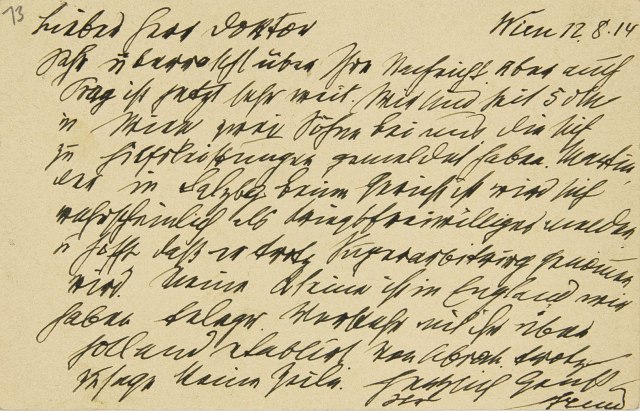 73
Lieber Herr Doktor Wien 12.8.14
Sehr überrascht über Ihre Nachricht. Aber auch
Prag ist jetzt sehr weit. Wir sind seit 5
in Wien zwei Söhne bei uns die sich
zu Hilfsleistungen gemeldet haben. Martin
der in Salzbg beim Gericht ist wird sich
wahrscheinlich als Kriegsfreiwilliger melden
u hofft daß er trotz Superarbitrirg genommen
wird. Meine Kleine ist in England wir
haben telegr. Verkehr mit ihr über
Holland etablirt. Von Abrah. trotz
Zusage keine Zeile. Herzlich Grüßt
Ihr Freud